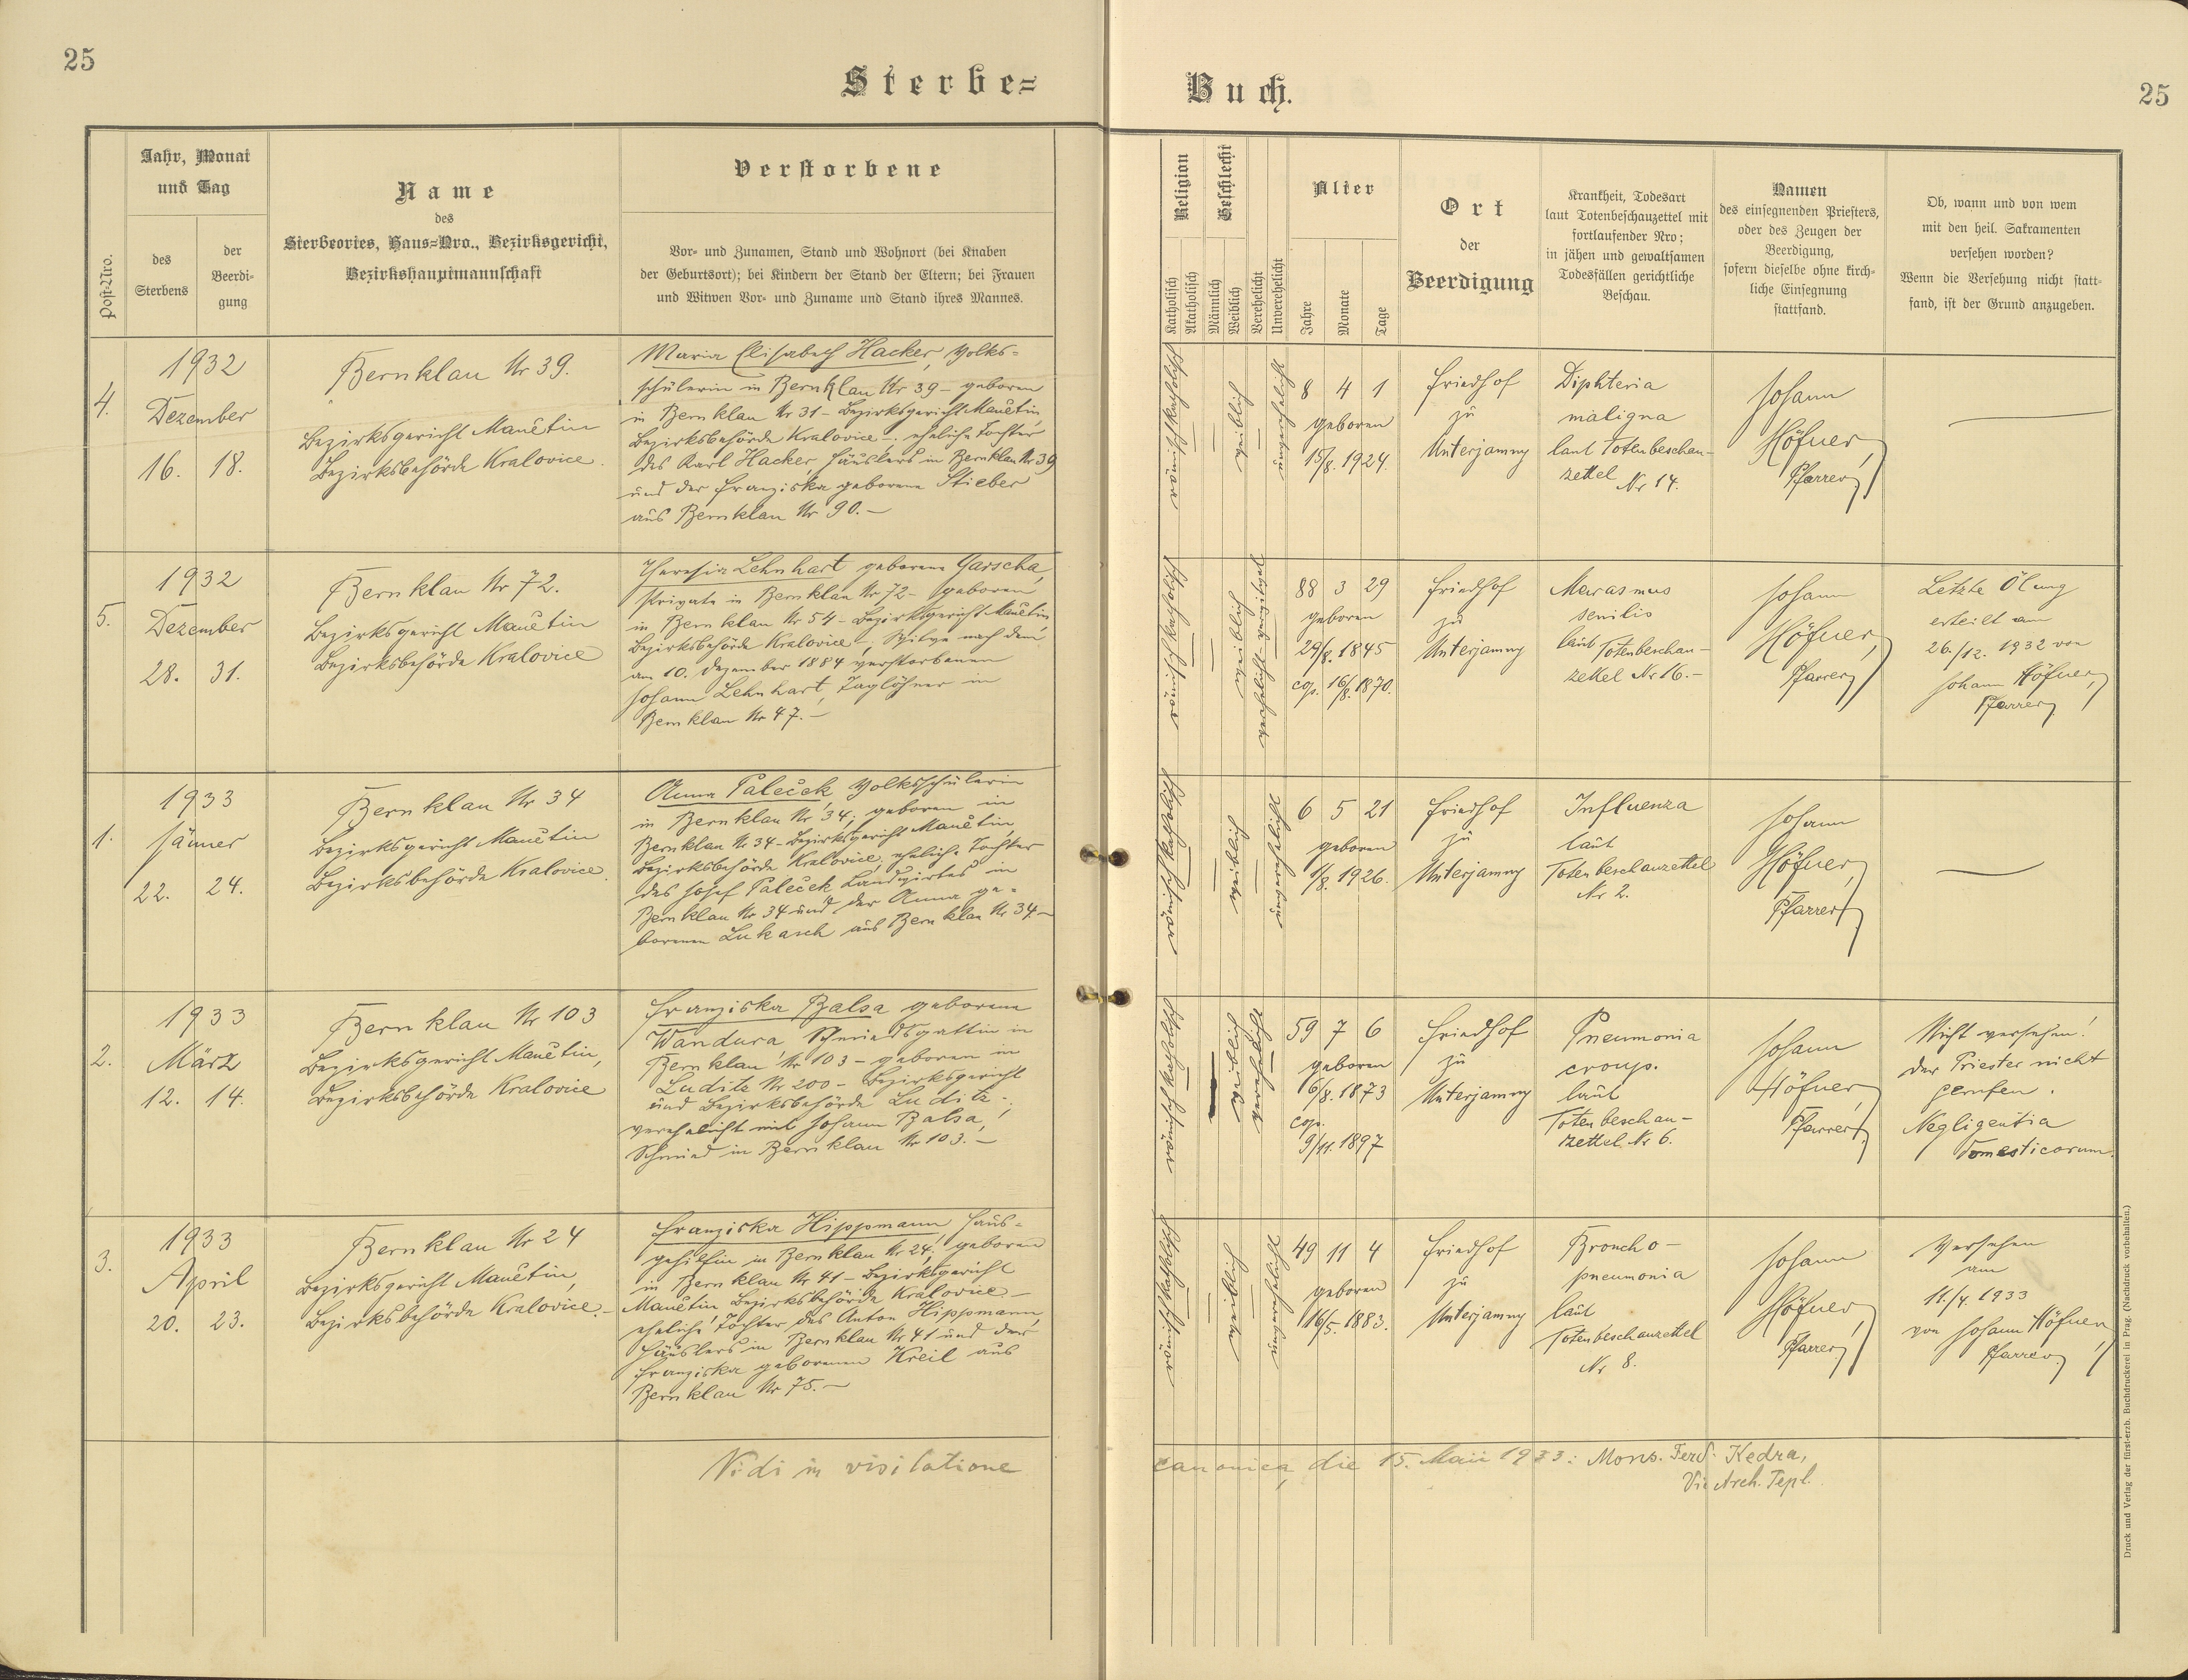 25
Sterbe=
Buch.
25
Post-Nro.
Jahr, Monat
und Tag
des
Sterbens
der
Beerdi-
gung
Name
des
Sterbeortes, Haus=Nro., Bezirksgericht,
Bezirkshauptmannschaft
Verstorbene
Vor- und Zunamen, Stand und Wohnort (bei Knaben
der Geburtsort); bei Kindern der Stand der Eltern; bei Frauen
und Witwen Vor- und Zuname und Stand ihres Mannes.
Religion
Katholisch
Akatholisch
Geschlecht
Männlich
Weiblich
Verehelicht
Unverehelicht
Alter
Jahre
Monate
Tage
Ort
der
Beerdigung
Krankheit, Todesart
laut Totenbeschauzettel mit
fortlaufender Nro;
in jähen und gewaltsamen
Todesfällen gerichtliche
Beschau.
Namen
des einsegnenden Priesters,
oder des Zeugen der
Beerdigung,
sofern dieselbe ohne kirch-
liche Einsegnung
stattfand.
Ob, wann und von wem
mit den heil. Sakramenten
versehen worden?
Wenn die Versehung nicht statt-
fand, ist der Grund anzugeben.
4.
1932
Dezember
16. 18.
Bernklau Nr 39.
Bezirksgericht Manětin
Bezirksbehörde Kralovice.
Maria Elisabeth Hacker, Volks=
schülerin in Bernklau Nr 39 – geboren
in Bernklau Nr 31 – Bezirksgericht Manětin,
Bezirksbehörde Kralovice –. eheliche Tochter
des Karl Hacker, Häuslers in Bernklau Nr 39
und der Franziska geborene Stieber
aus Bernklau Nr 90. –
römisch katholisch
weiblich
unverehelicht
8 4 1
geboren
15/8. 1924.
Friedhof
zu
Unterjamny
Diphteria
maligna
laut Totenbeschau-
zettel Nr 14.
Johann
Höfner,
Pfarrer
5.
1932
Dezember
28. 31.
Bernklau Nr 72.
Bezirksgericht Manětin
Bezirksbehörde Kralovice
Theresia Lehnhart geborene Garscha,
Private in Bernklau Nr 72 – geboren
in Bernklau Nr 54 – Bezirksgericht Manětin,
Bezirksbehörde Kralovice –, Witwe nach dem
am 10. Dezember 1884 verstorbenen
Johann Lehnhart, Taglöhner in
Bernklau Nr 47. –
römisch katholisch
weiblich
verehelicht – verwitwet
88 3 29
geboren
29/8. 1845
cop. 16/8. 1870.
Friedhof
zu
Unterjamny
Marasmus
senilis
laut Totenbeschau-
zettel Nr 16. –
Johann
Höfner,
Pfarrer
Letzte Ölung
erteilt am
26./12. 1932 von
Johann Höfner,
Pfarrer
1.
1933
Jänner
22. 24.
Bernklau Nr 34
Bezirksgericht Manětin
Bezirksbehörde Kralovice.
Anna Paleček Volksschülerin
in Bernklau Nr 34; geboren in
Bernklau Nr 34 – Bezirksgericht Manětin,
Bezirksbehörde Kralovice, eheliche Tochter
des Josef Paleček Landwirtes in
Bernklau Nr 34 und der Anna ge=
borenen Lukasch aus Bernklau Nr 34 –
römisch katholisch
weiblich
unverehelicht
6 5 21
geboren
1/8. 1926.
Friedhof
zu
Unterjamny
Influenza
laut
Totenbeschauzettel
Nr 2.
Johann
Höfner,
Pfarrer
2.
1933
März
12. 14.
Bernklau Nr 103
Bezirksgericht Manětin,
Bezirksbehörde Kralovice
Franziska Balsa geborene
Wandura Schmiedsgattin in
Bernklau Nr 103 – geboren in
Luditz Nr 200 – Bezirksgericht
und Bezirksbehörde Luditz –.
verehelicht mit Johann Balsa,
Schmied in Bernklau Nr 103. –
römisch katholisch
weiblich
verehelicht
59 7 6
geboren
6/8. 1873
cop.
9/11. 1897
Friedhof
zu
Unterjamny
Pneumonia
croup.
laut
Totenbeschau-
zettel Nr 6.
Johann
Höfner,
Pfarrer
Nicht versehen!
der Priester nicht
gerufen.
Negligentia
domesticorum.
3.
1933
April
20. 23.
Bernklau Nr 24
Bezirksgericht Manětin,
Bezirksbehörde Kralovice –
Franziska Hippmann Haus=
gehilfin in Bernklau Nr 24; geboren
in Bernklau Nr 41 – Bezirksgericht
Manětin Bezirksbehörde Kralovice –
eheliche Tochter des Anton Hippmann,
Häuslers in Bernklau Nr 41 und der
Franziska geborenen Kreil aus
Bernklau Nr 75. –
römisch katholisch
weiblich
unverehelicht
49 11 4
geboren
16/5. 1883.
Friedhof
zu
Unterjamny
Broncho-
pneumonia
laut
Totenbeschauzettel
Nr 8.
Johann
Höfner,
Pfarrer
Versehen
am
11./4. 1933
von Johann Höfner,
Pfarrer
Vidi in visitatione
canonica, die 15. Maii 1933: Mons. Ferd. Kedra,
Vic Arch. Tepl.
Druck und Verlag der fürst-erzb. Buchdruckerei in Prag. (Nachdruck vorbehalten.)